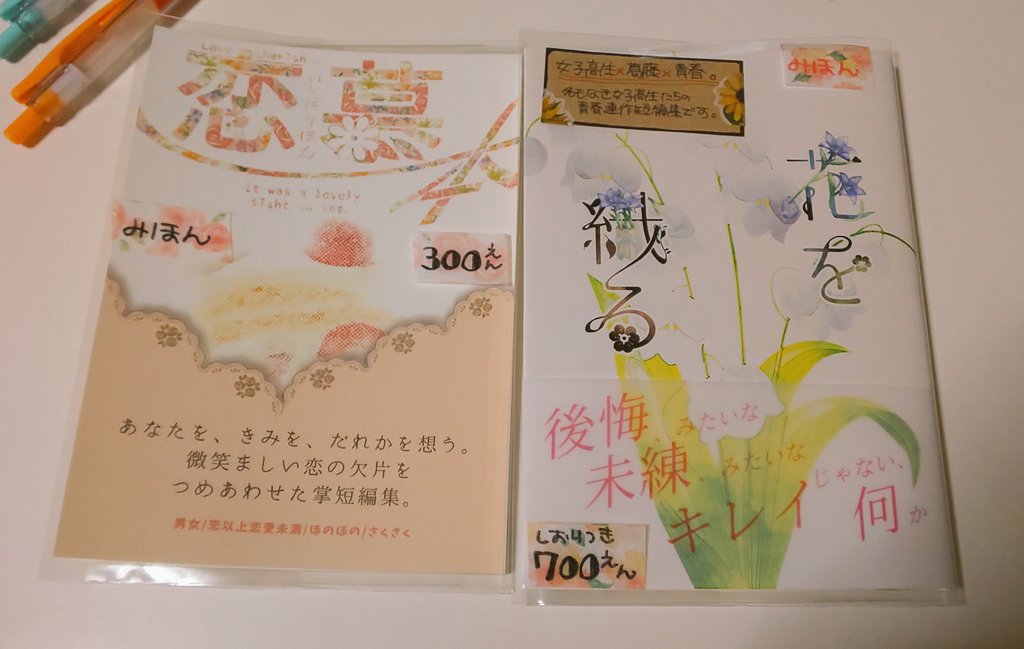 恋慕
It was a lovely
sight to see.
みほん
300えん
あなたを、きみを、だれかを想う。
微笑ましい恋の欠片を
つめあわせた掌短編集。
男女/恋以上恋愛未満/ほのぼの/さくさく
女子高生×葛藤×青春。
名もなき女子高生たちの
青春連作短編集です。
みほん
花を
る
後悔みたいな
未練みたいな
キレイじゃない、何か
しおりつき
700えん